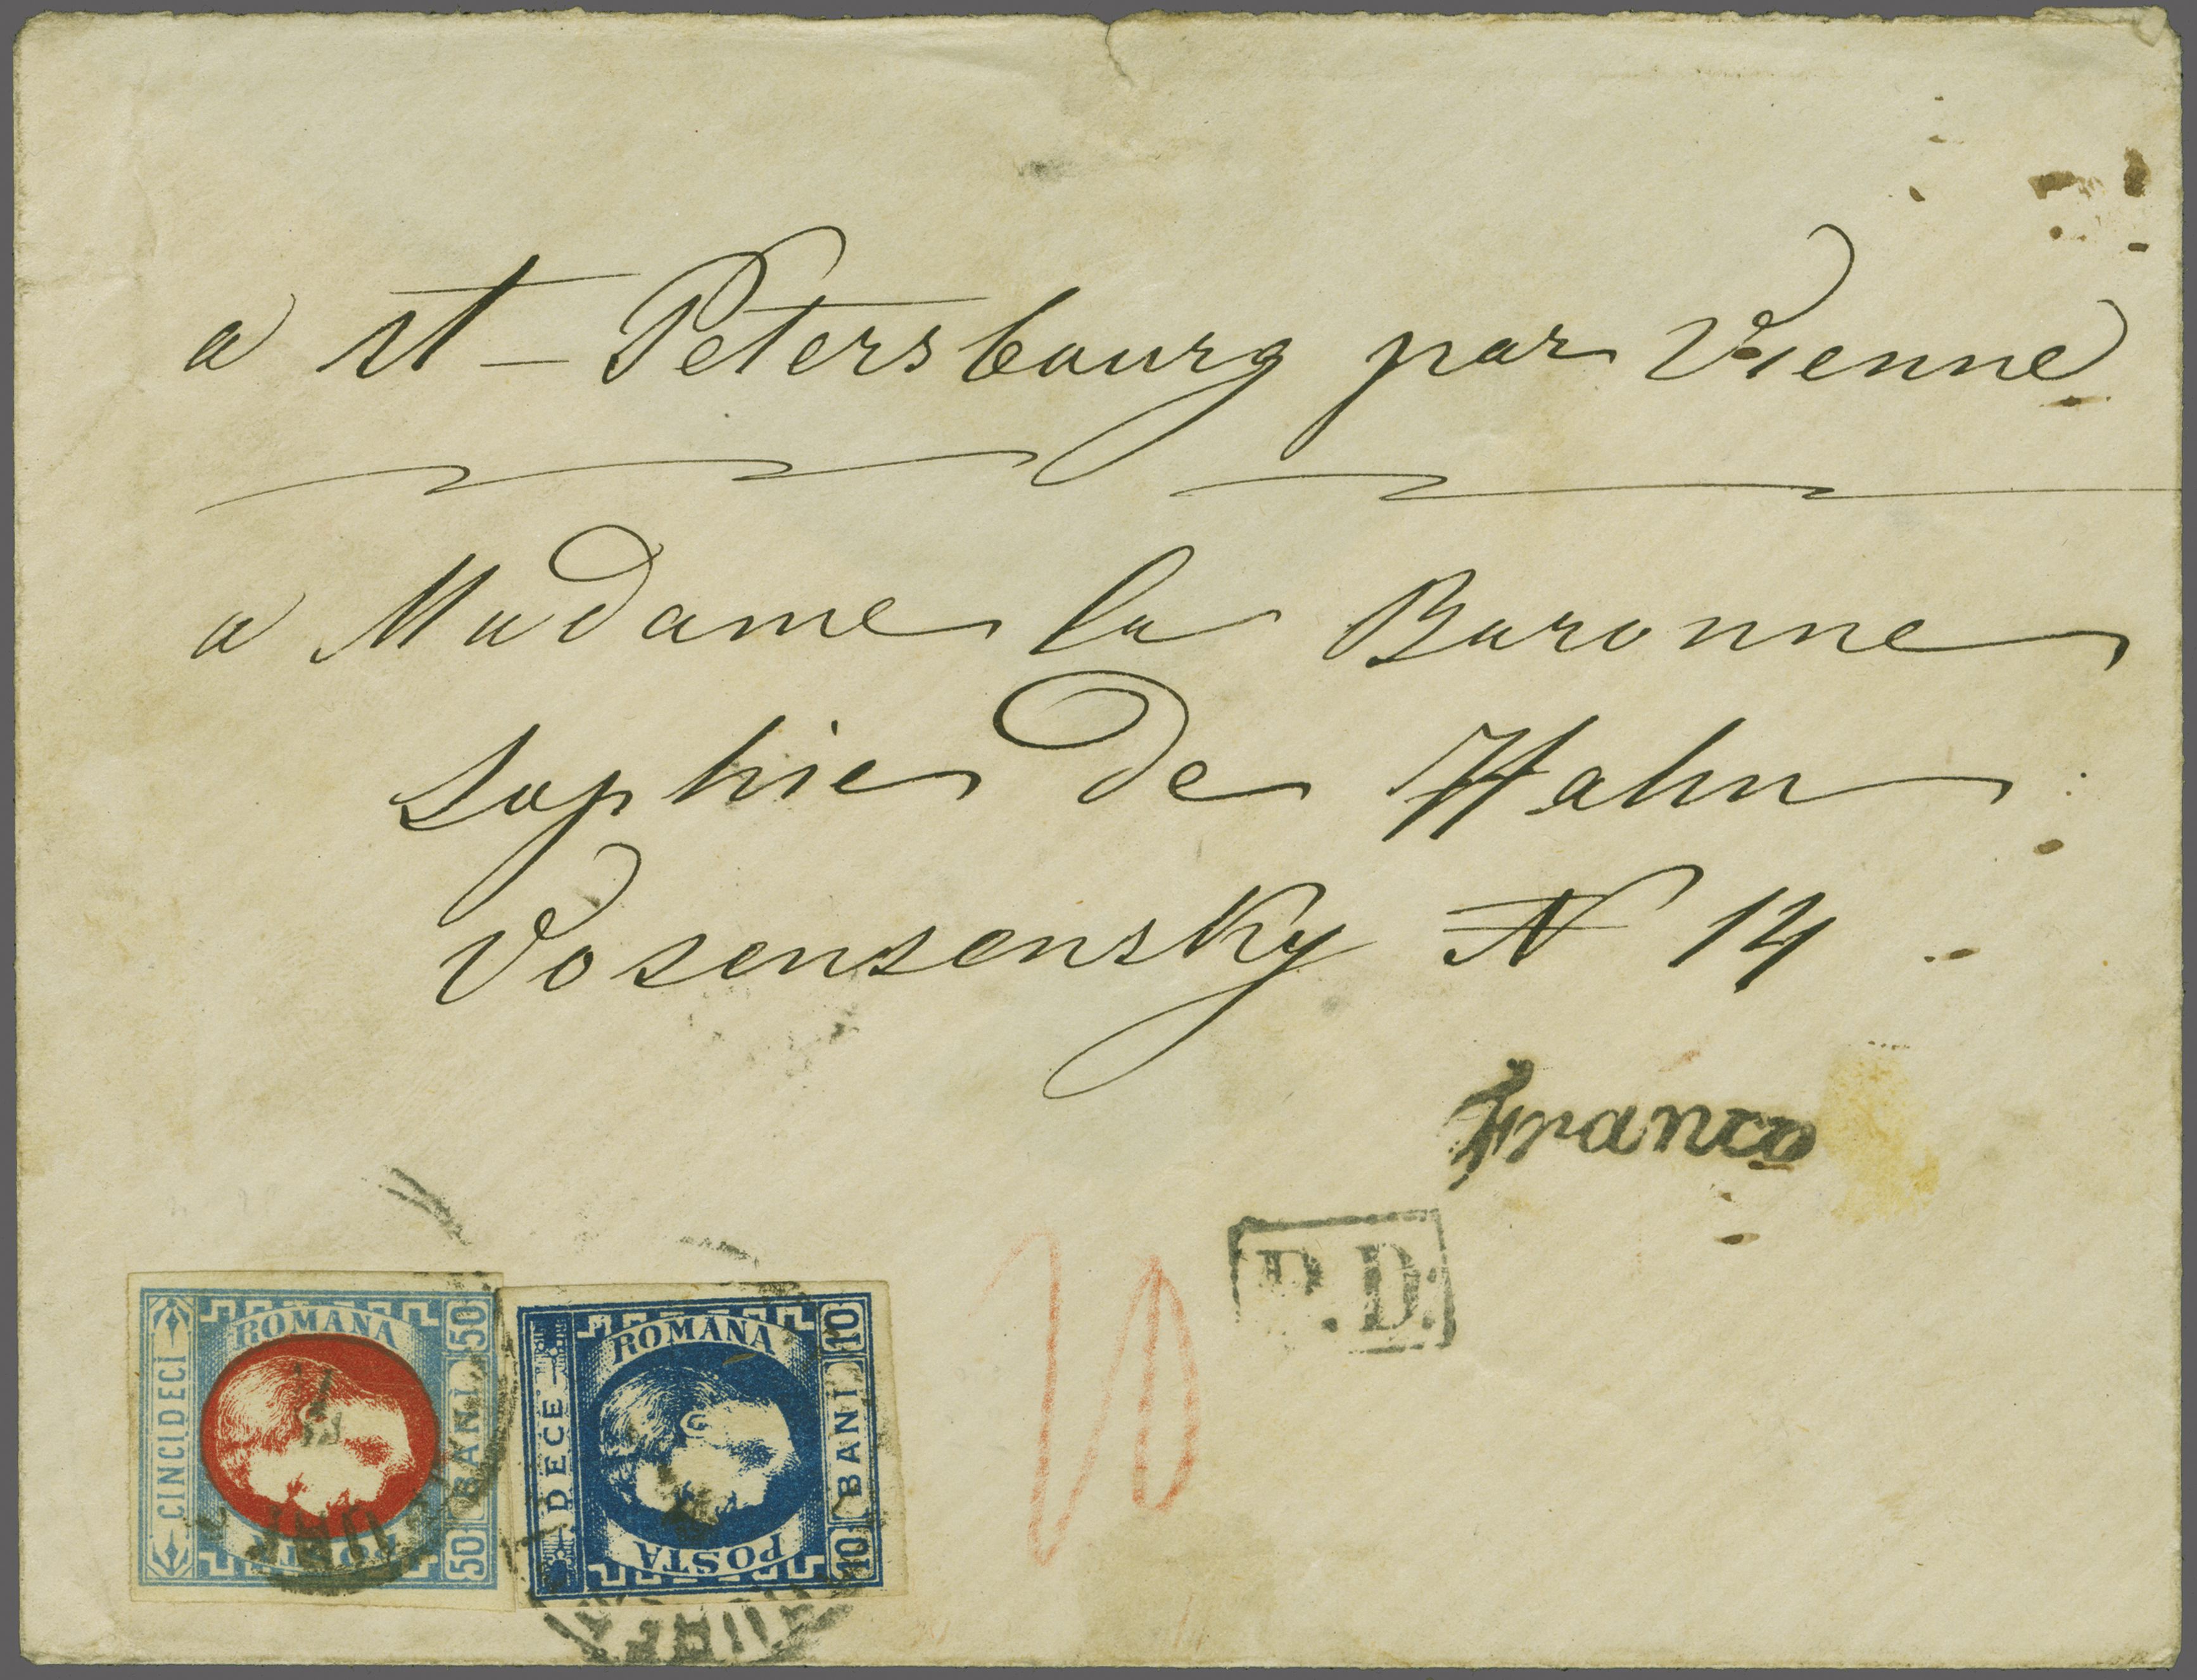 a st-Petersbourg par Vienne
a Madame la Baronne
Sophie de Hahn
Vosensensky N 14
Franco
P.D.
10
ROMANA
CINCIDECI
50 BANI 50
POSTA
ROMANA
DECE
10 BANI 10
POSTA